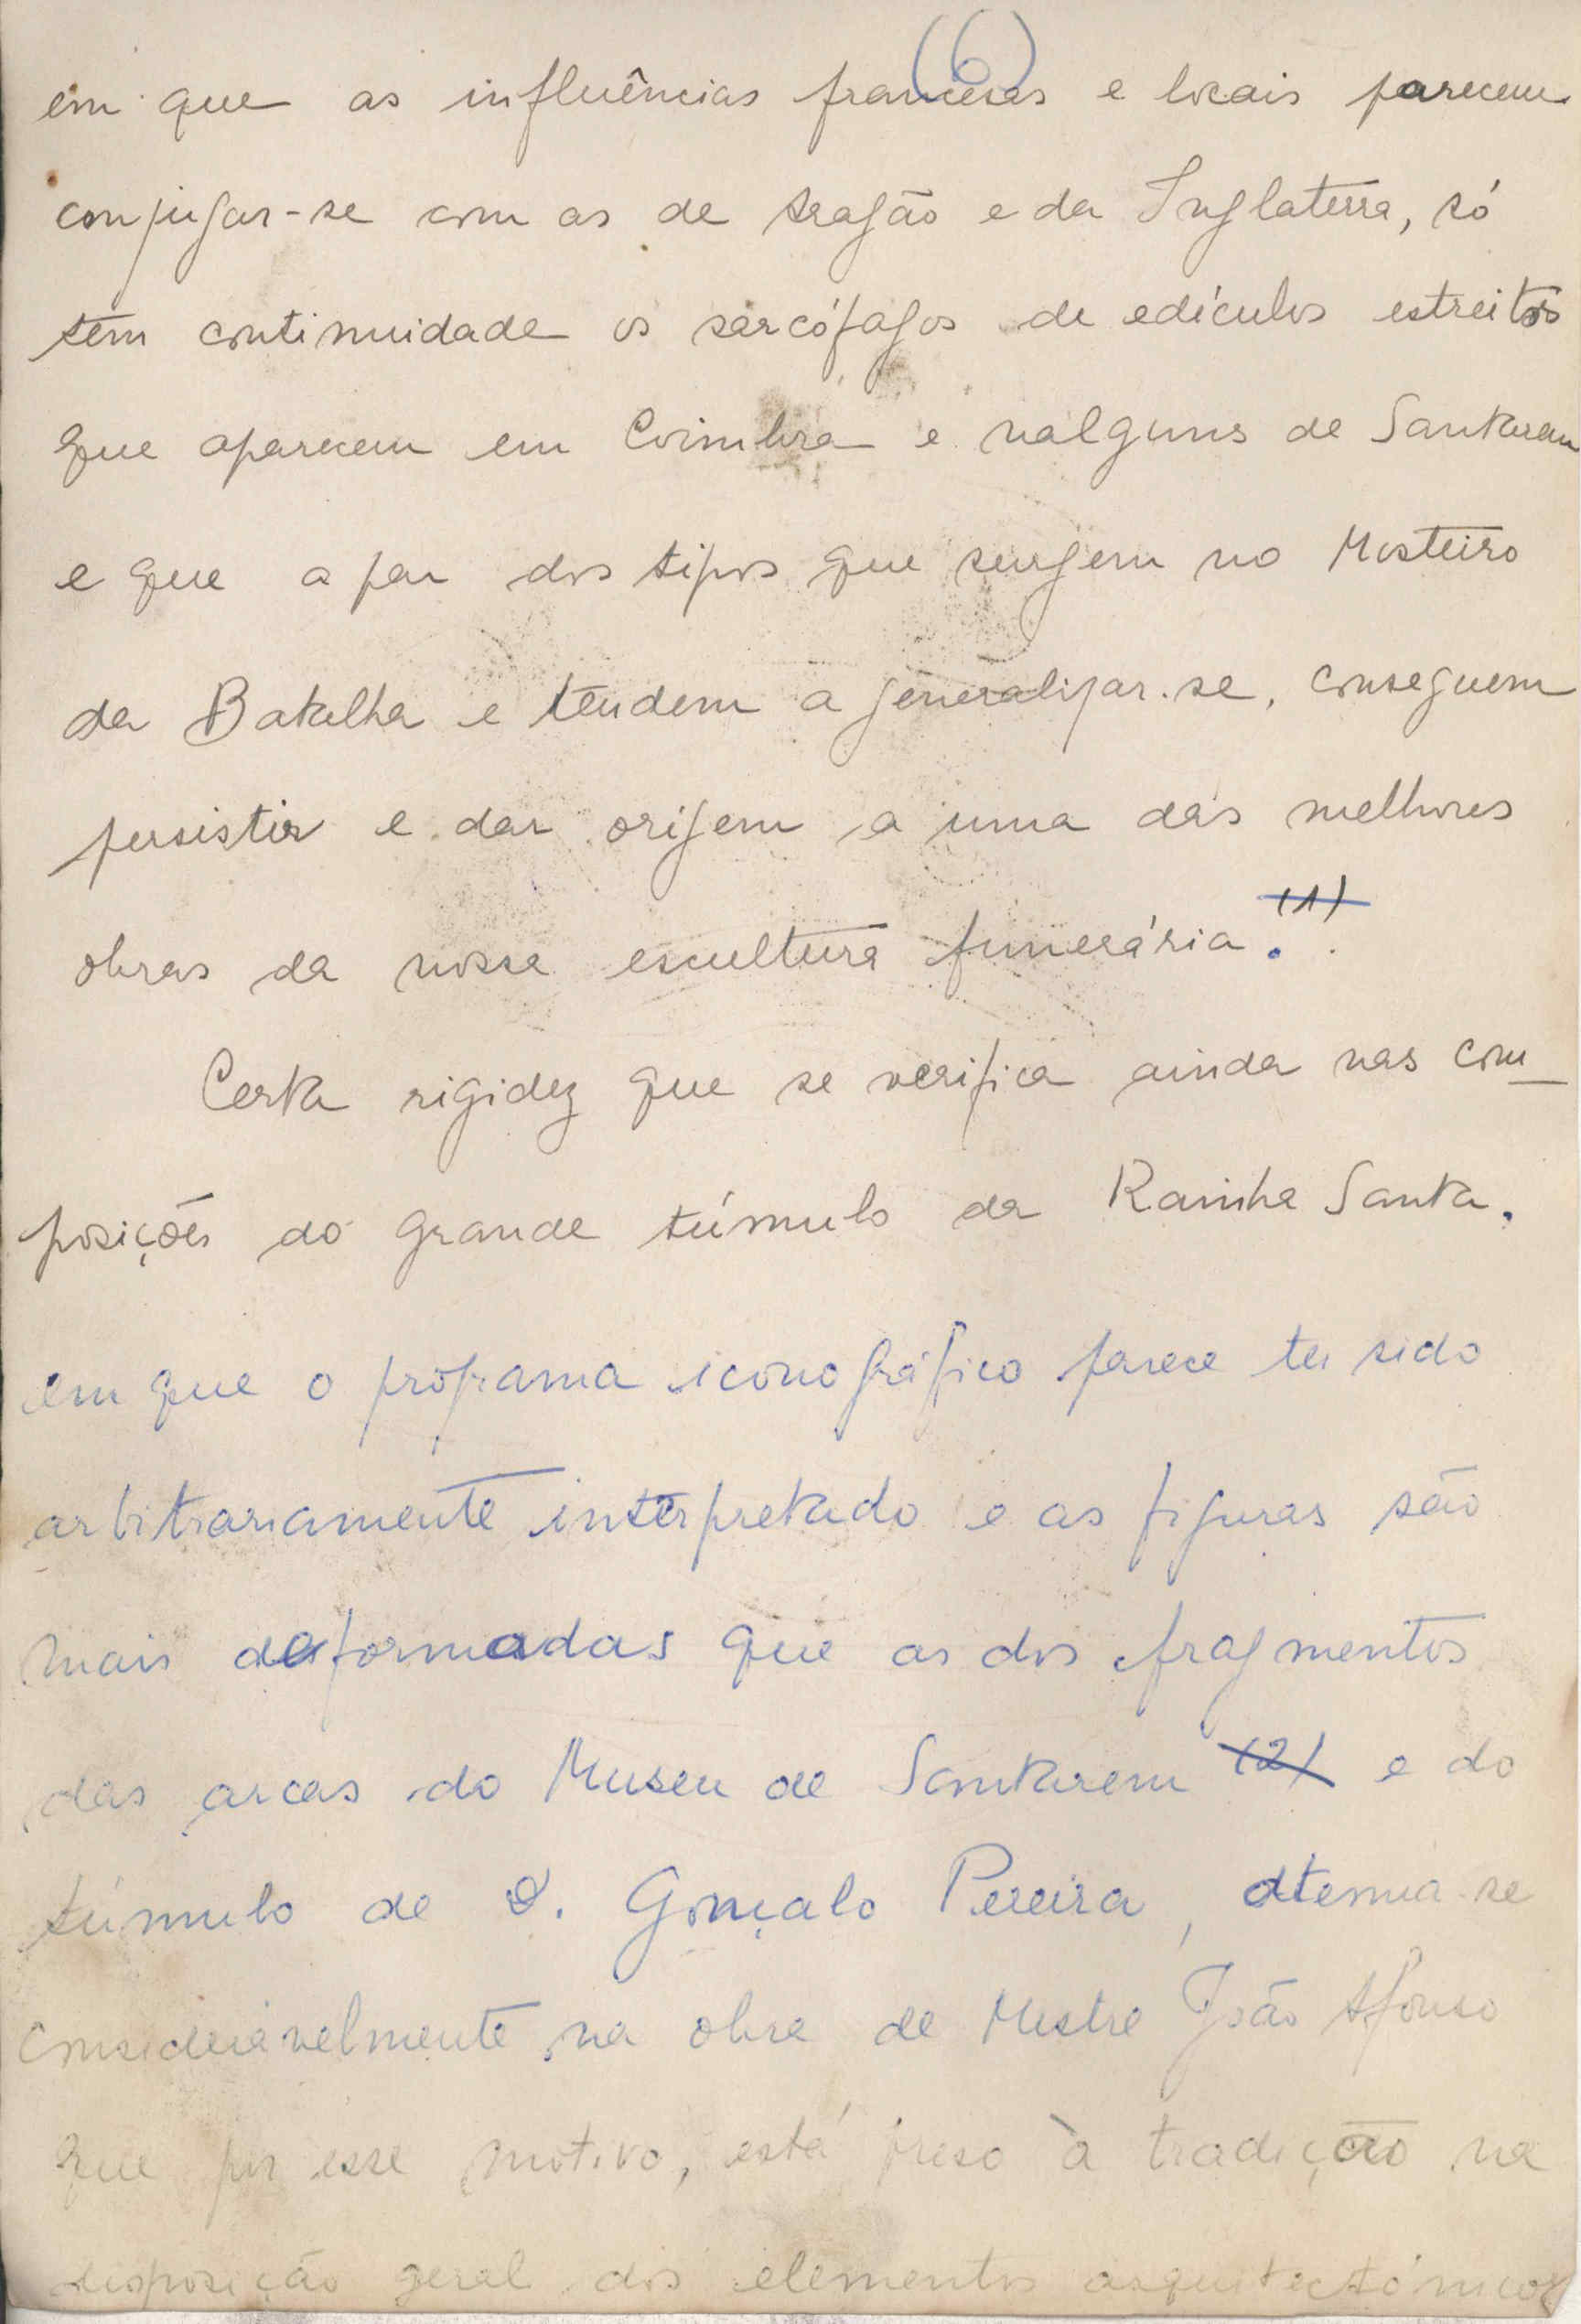 (6)
em que as influências francesas e locais parecem
conjugar-se com as de Aragão e da Inglaterra, só
têm continuidade os sarcófagos de edículos estreitos
que aparecem em Coimbra e nalguns de Santarem
e que a par dos tipos que surgem no Mosteiro
da Batalha e tendem a generalizar-se, conseguem
persistir e dar origem a uma das melhores
obras da nossa escultura funerária. (1).
Certa rigidez que se verifica ainda nas com_
posições do grande túmulo da Rainha Santa,
em que o programa iconográfico parece ter sido
arbitrariamente interpretado e as figuras são
mais deformadas que as dos fragmentos
das arcas do Museu de Santarem (2) e do
túmulo de D. Gonçalo Pereira, atenua-se
consideravelmente na obra de Mestre João Afonso
que por esse motivo, está preso à tradição na
disposição geral dos elementos arquitectónicos